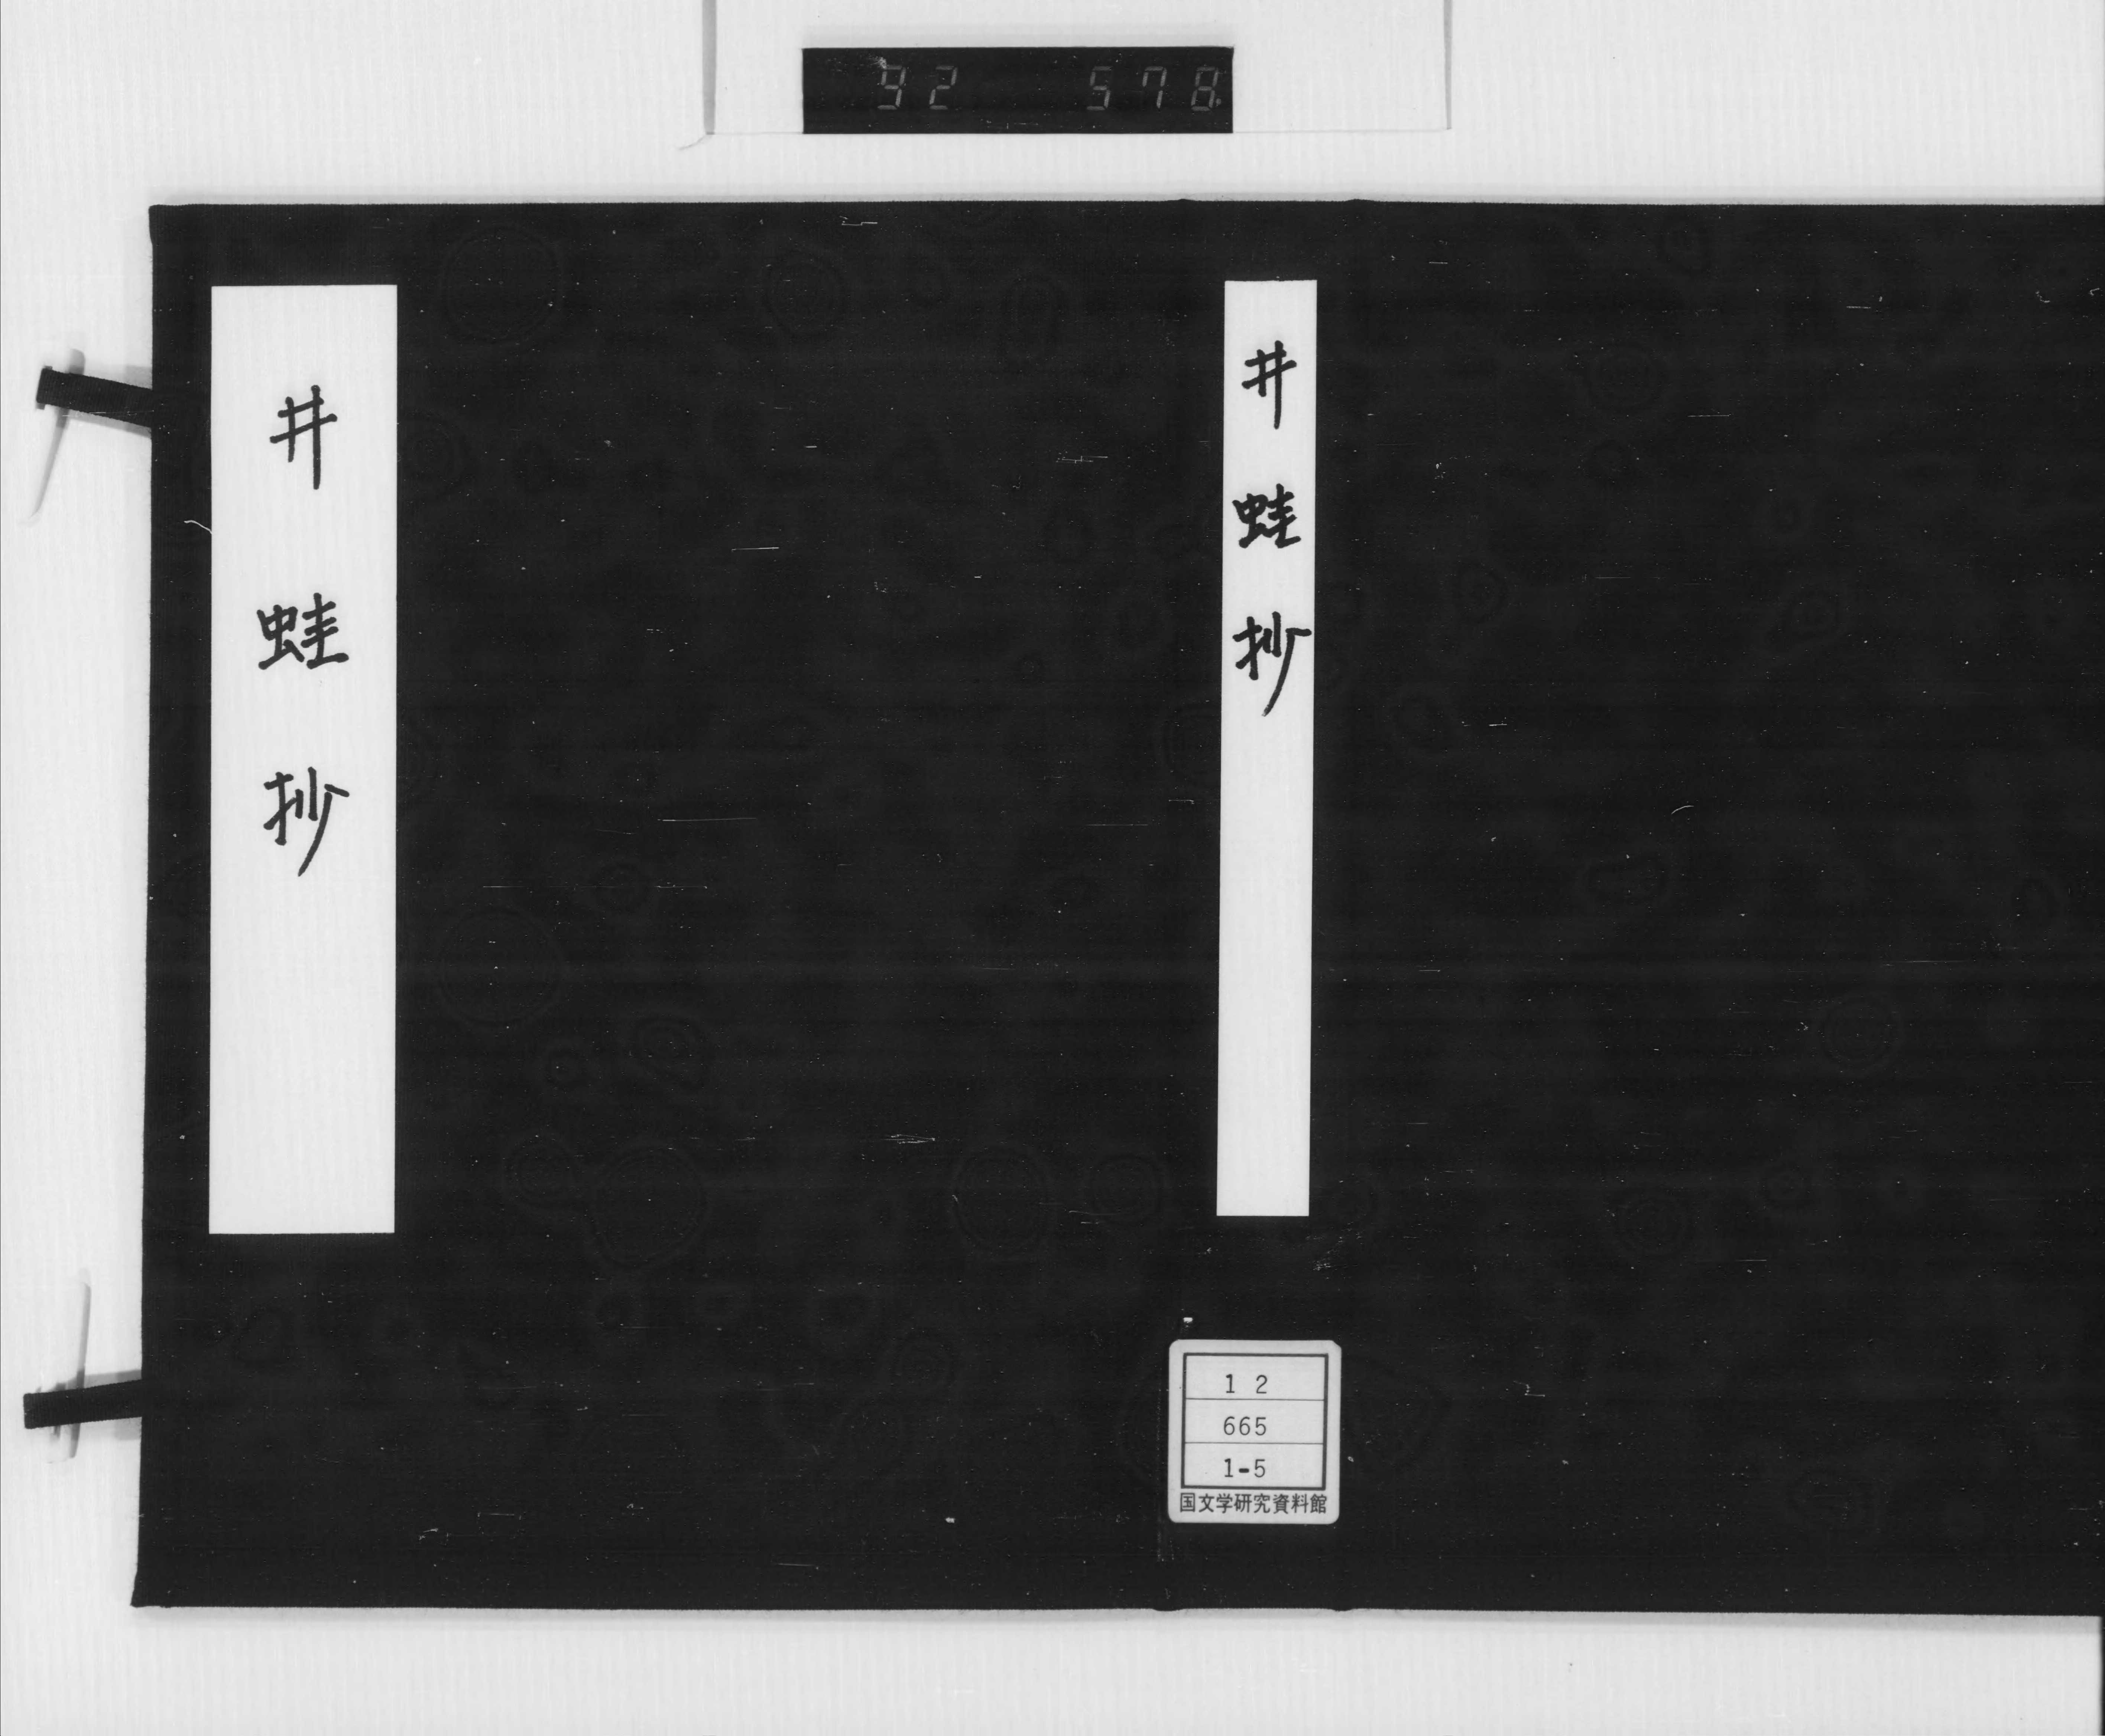 92 578
井蛙抄
井蛙抄
12
665
1-5
国文学研究資料館